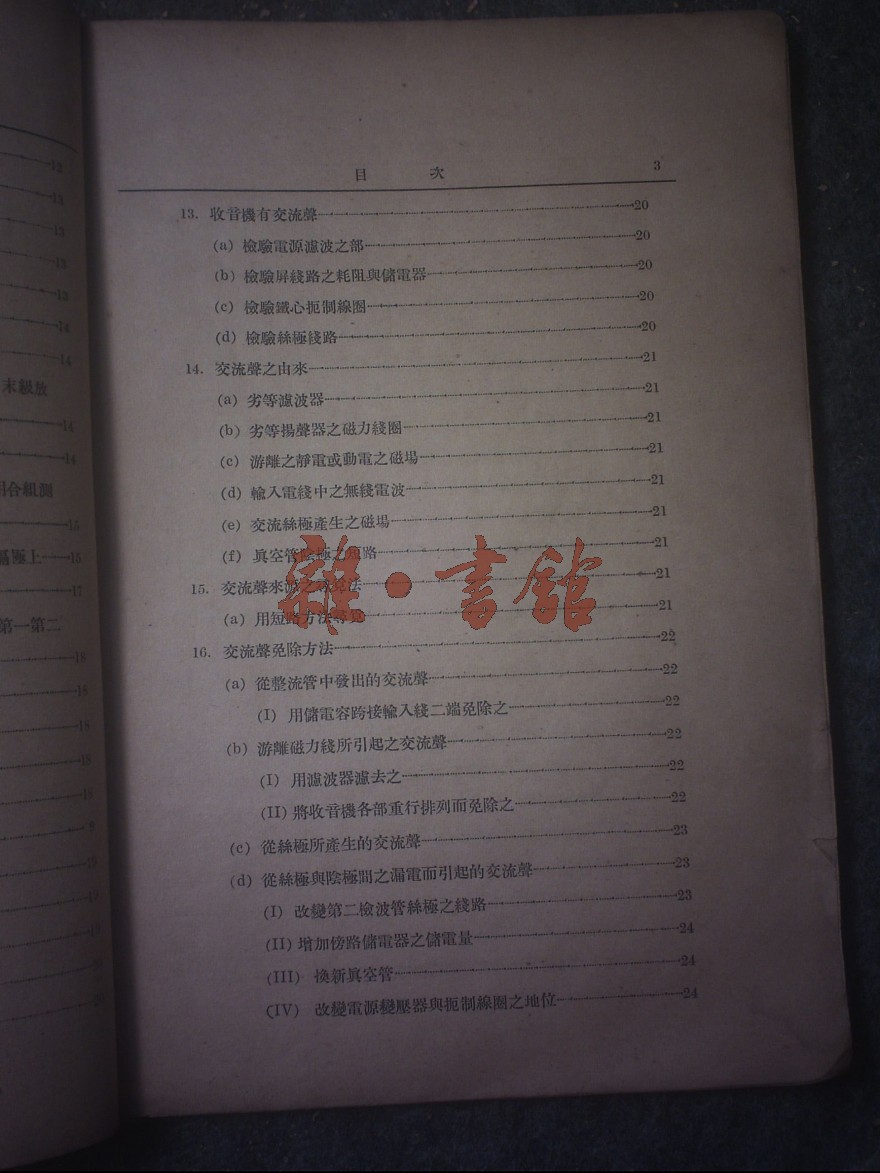 目 次 3
13. 收音機有交流聲 20
(a) 檢驗電源濾波之部 20
(b) 檢驗屏綫路之耗阻與儲電器 20
(c) 檢驗鐵心扼制線圈 20
(d) 檢驗絲極綫路 20
14. 交流聲之由來 21
(a) 劣等濾波器 21
(b) 劣等揚聲器之磁力綫圈 21
(c) 游離之靜電或動電之磁場 21
(d) 輸入電綫中之無綫電波 21
(e) 交流絲極產生之磁場 21
(f) 眞空管陰極之短路 21
15. 交流聲來源之尋覓法 21
(a) 用短路方法尋覓 21
16. 交流聲免除方法 22
(a) 從整流管中發出的交流聲 22
(I) 用儲電容跨接輸入綫二端免除之 22
(b) 游離磁力綫所引起之交流聲 22
(I) 用濾波器濾去之 22
(II) 將收音機各部重行排列而免除之 22
(c) 從絲極所產生的交流聲 23
(d) 從絲極與陰極間之漏電而引起的交流聲 23
(I) 改變第二檢波管絲極之綫路 23
(II) 增加傍路儲電器之儲電量 24
(III) 換新眞空管 24
(IV) 改變電源變壓器與扼制線圈之地位 24
12
13
13
13
13
14
14
末級放
14
14
組測
15
極上 15
17
第一第二
18
18
18
18
雜·書館